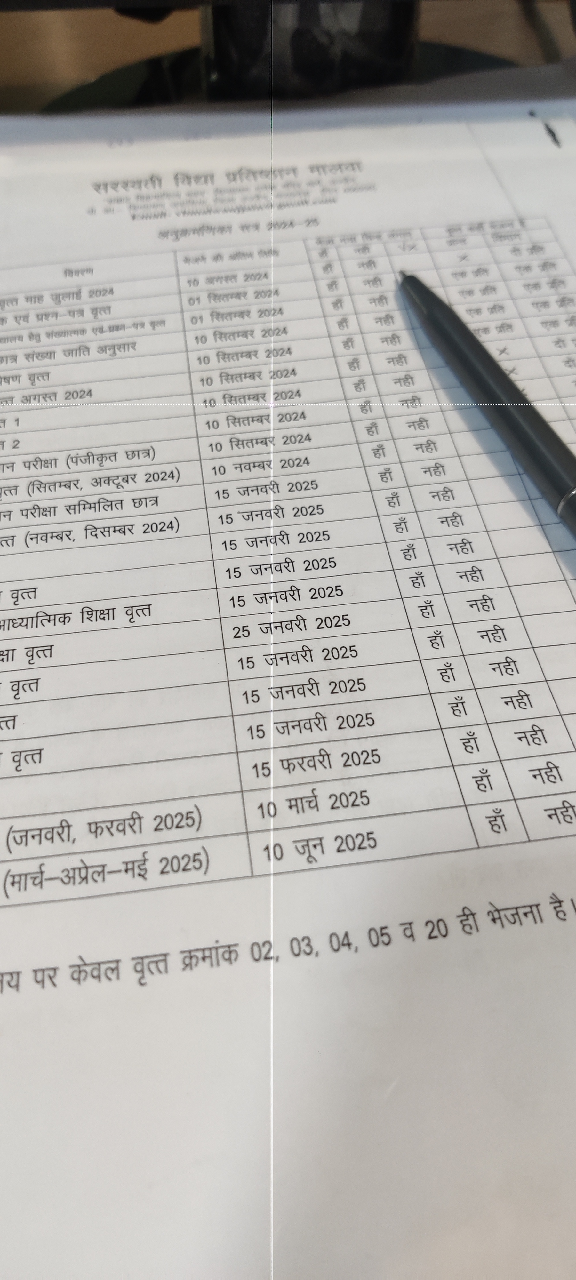 सरस्वती विद्या प्रतिष्ठान मालवा
अनुक्रमणिका सत्र 2024-25
विवरण भेजने की अंतिम तिथि
वृत्त माह जुलाई 2024 10 अगस्त 2024 हाँ नही
क एवं प्रश्न-पत्र वृत्त 01 सितम्बर 2024 हाँ नही एक प्रति एक प्रति
01 सितम्बर 2024 हाँ नही एक प्रति एक प्रति
छात्र संख्या जाति अनुसार 10 सितम्बर 2024 हाँ नही एक प्रति एक प्रति
षण वृत्त 10 सितम्बर 2024 हाँ नही एक प्रति एक प्रति
त्त अगस्त 2024 10 सितम्बर 2024 हाँ नही
त 1 10 सितम्बर 2024 हाँ नही
त 2 10 सितम्बर 2024 हाँ नही
न परीक्षा (पंजीकृत छात्र) 10 सितम्बर 2024 हाँ नही
वृत्त (सितम्बर, अक्टूबर 2024) 10 नवम्बर 2024 हाँ नही
न परीक्षा सम्मिलित छात्र 15 जनवरी 2025 हाँ नही
त्त (नवम्बर, दिसम्बर 2024) 15 जनवरी 2025 हाँ नही
15 जनवरी 2025 हाँ नही
वृत्त 15 जनवरी 2025 हाँ नही
आध्यात्मिक शिक्षा वृत्त 15 जनवरी 2025 हाँ नही
क्षा वृत्त 25 जनवरी 2025 हाँ नही
वृत्त 15 जनवरी 2025 हाँ नही
त्त 15 जनवरी 2025 हाँ नही
वृत्त 15 जनवरी 2025 हाँ नही
15 फरवरी 2025 हाँ नही
(जनवरी, फरवरी 2025) 10 मार्च 2025 हाँ नही
(मार्च–अप्रेल–मई 2025) 10 जून 2025 हाँ नही
लय पर केवल वृत्त क्रमांक 02, 03, 04, 05 व 20 ही भेजना है।